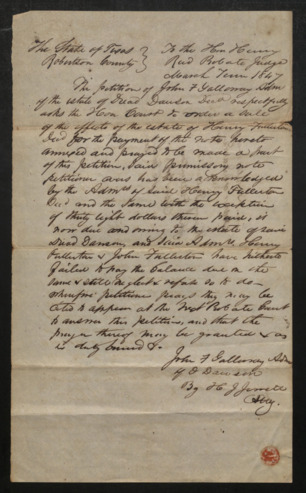 The State of Texas } To the Hon Henry
Robertson County } Reed Probate Judge
March Term 1847
The petition of John F Galloway Adm
of the estate of Dread Dawson Decd respectfully
asks the Hon Court to order a sale
of the effects of the estate of Henry Fullerton
Decd for the payment of the note hereto
annexed and prayed to be made a part
of this petition, Said promissory note
petitioner avers has been acknowledged
by the Admrs of said Henry Fullerton
Decd and the same with the exception
of thirty eight dollars thereon paid, is
now due and owing to the estate of said
Dread Dawson and said Admrs Henry
Fullerton & John Fullerton have hitherto
failed to pay the balance due on the
same & still neglect & refuse so to do
wherefore petitioner prays they may be
cited to appear at the next Probate Court
to answer this petition, and that the
prayer thereof may be granted & as
in duty bound &c
John F Galloway Adm
of D Dawson
By H J Jewett
Atty.